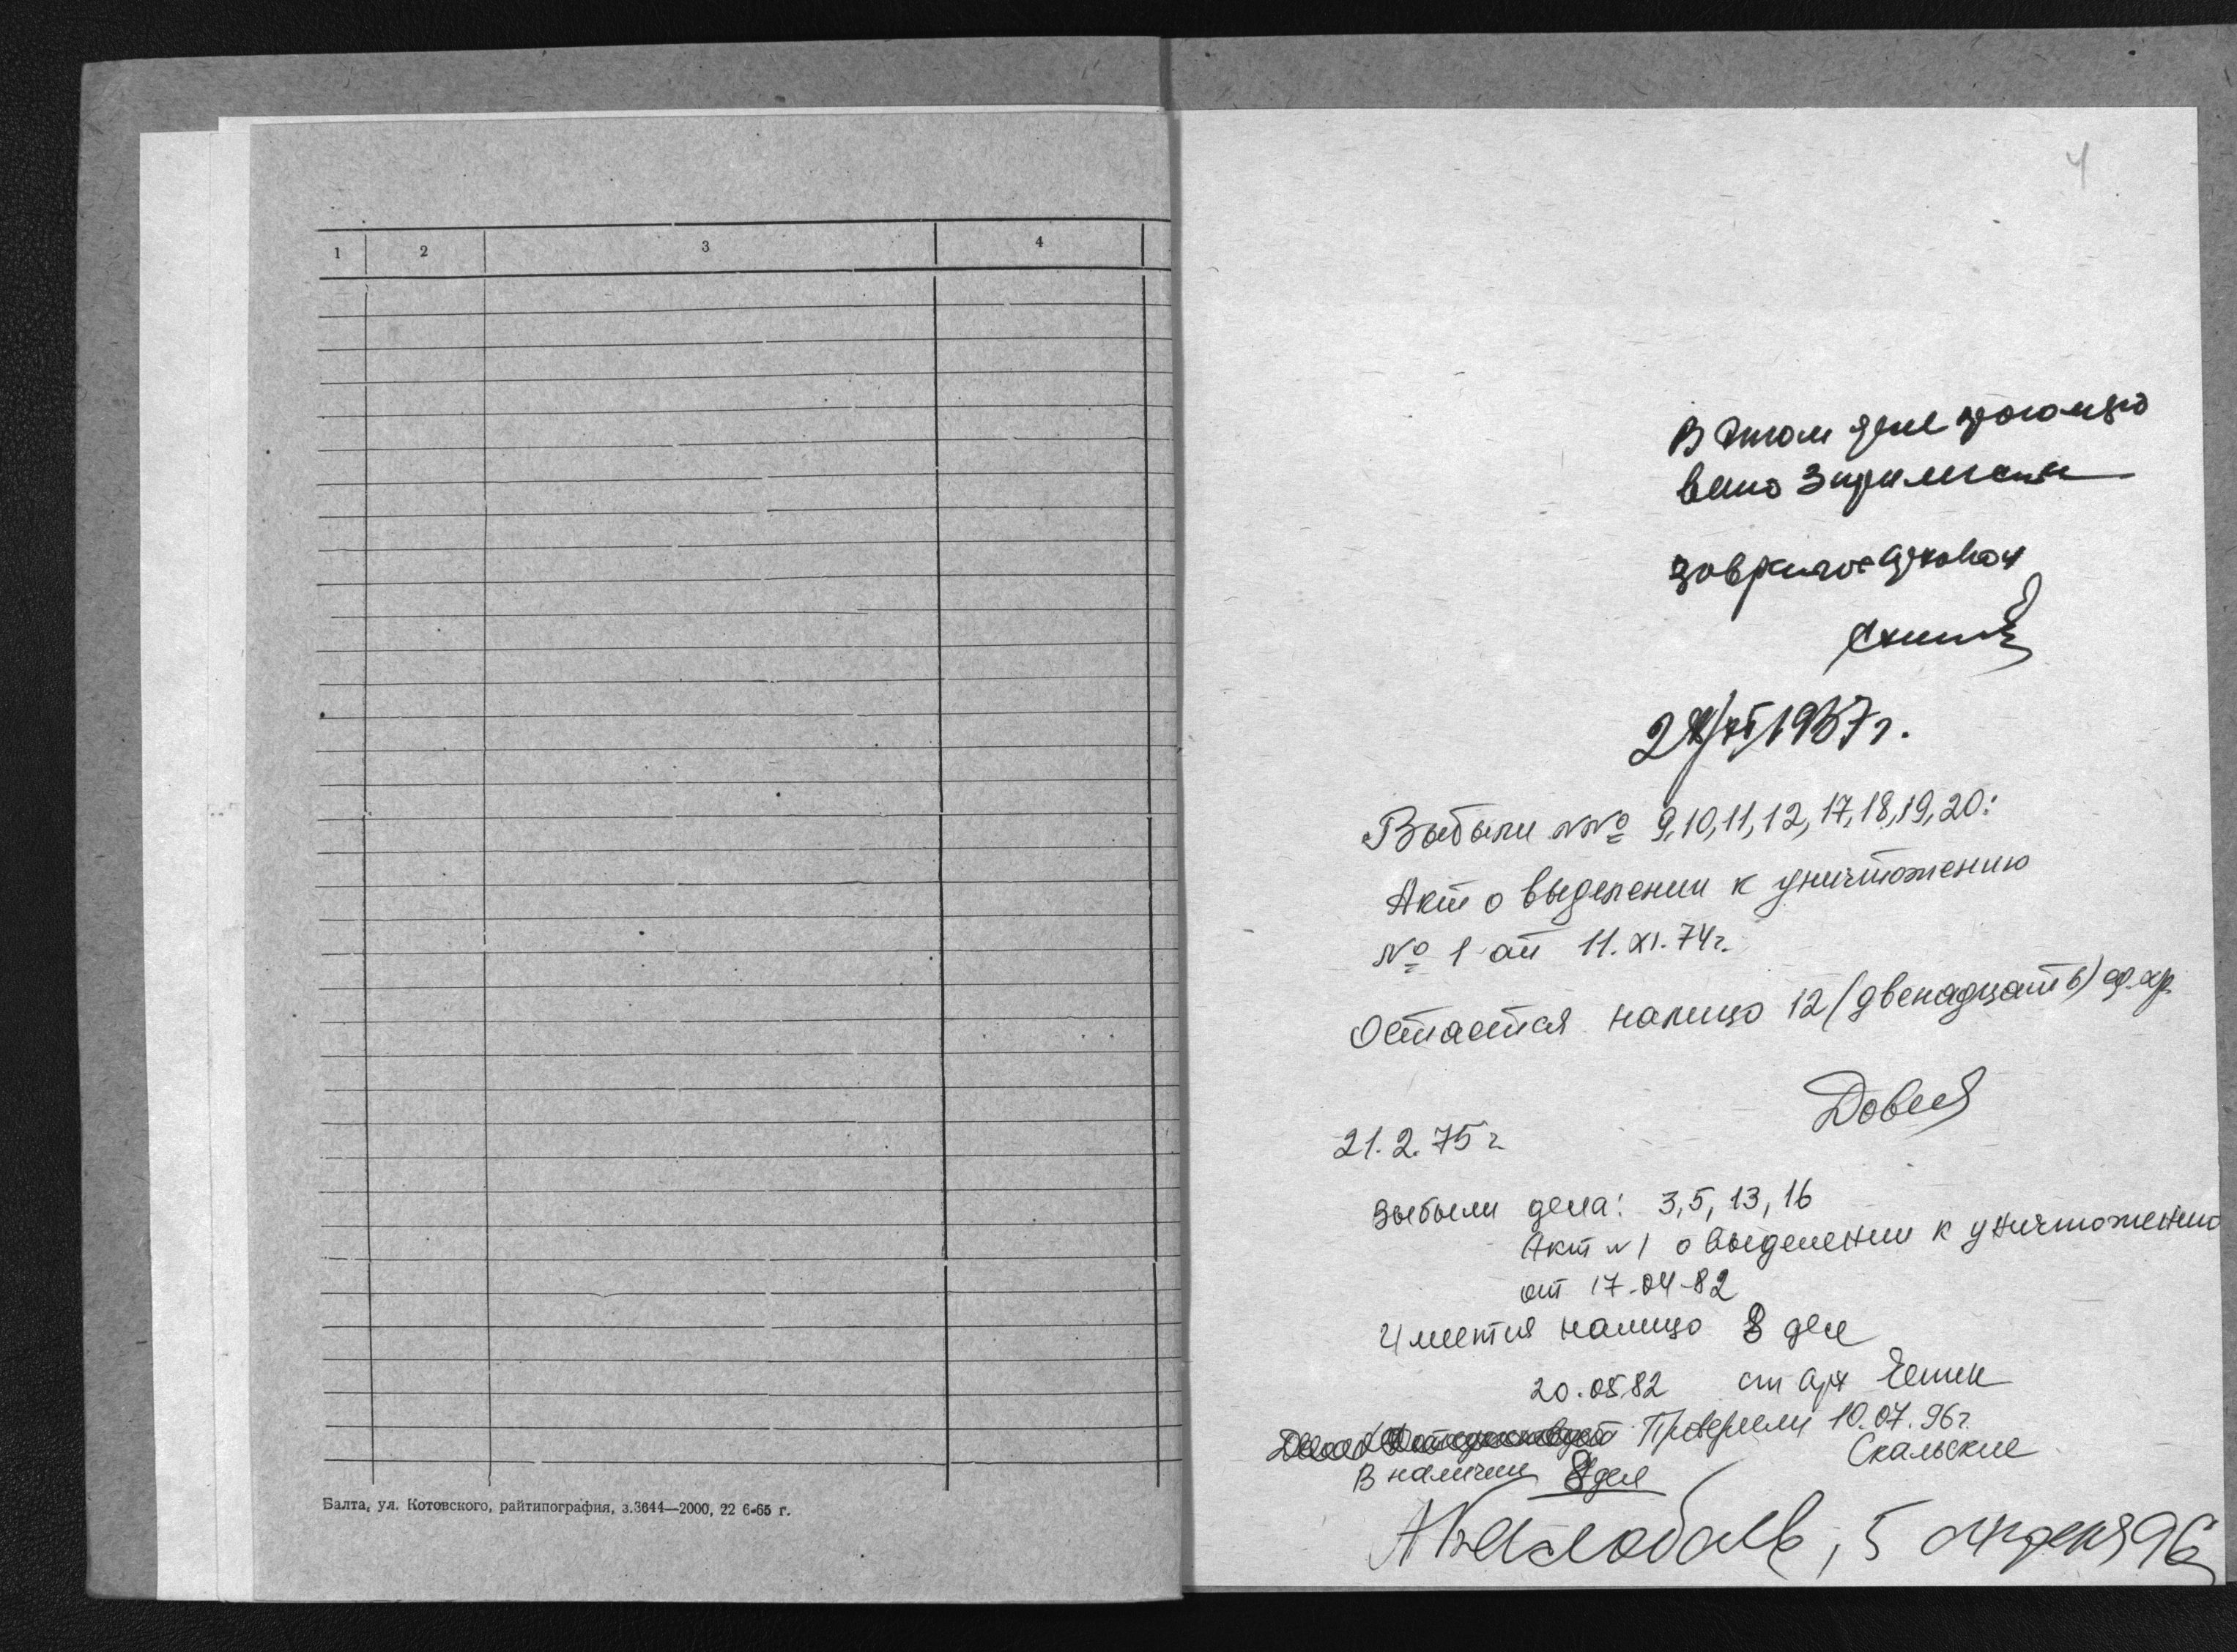 1 2 3 4
Балта, ул. Котовского, райтипография, з.3644—2000, 22 6-65 г.
4
В этом деле
вано 3 три листа

1967 г.
Выбыли №№ 9, 10, 11, 12, 17, 18, 19, 20:
Акт о выделении к уничтожению
№ 1 от 11.XI.74г.
Остается налицо 12 (двенадцать) ед.хр.
21.2.75 г
Выбыли дела: 3, 5, 13, 16
Акт №1 о выделении к уничтожению
от 17-04-82
Имеется налицо 8 дел
20.05.82 ст арх
Проверели 10.07.96г.
Скальские
В наличии 8 дел
, 5 96